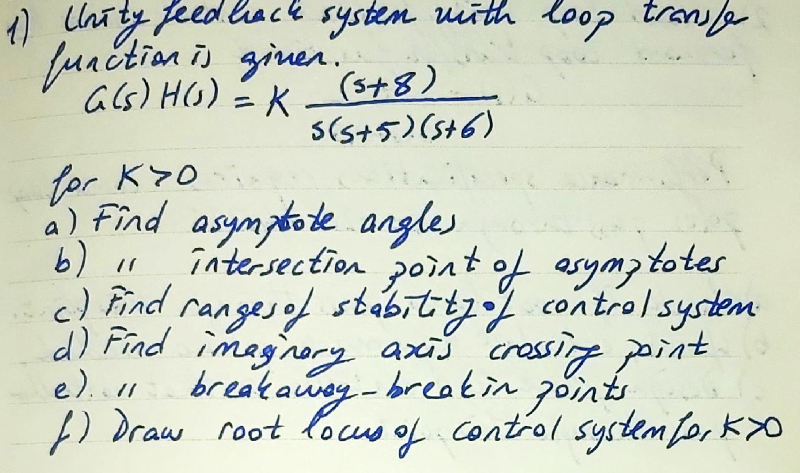 1) Unity feedback system with loop transfer
function is given.
G(s) H(s) = K (s+8) / s(s+5)(s+6)
for K>0
a) Find asymptote angles
b) " intersection point of asymptotes
c) Find ranges of stability of control system
d) Find imaginary axis crossing point
e) " breakaway-breakin points
f) Draw root locus of control system for K>0